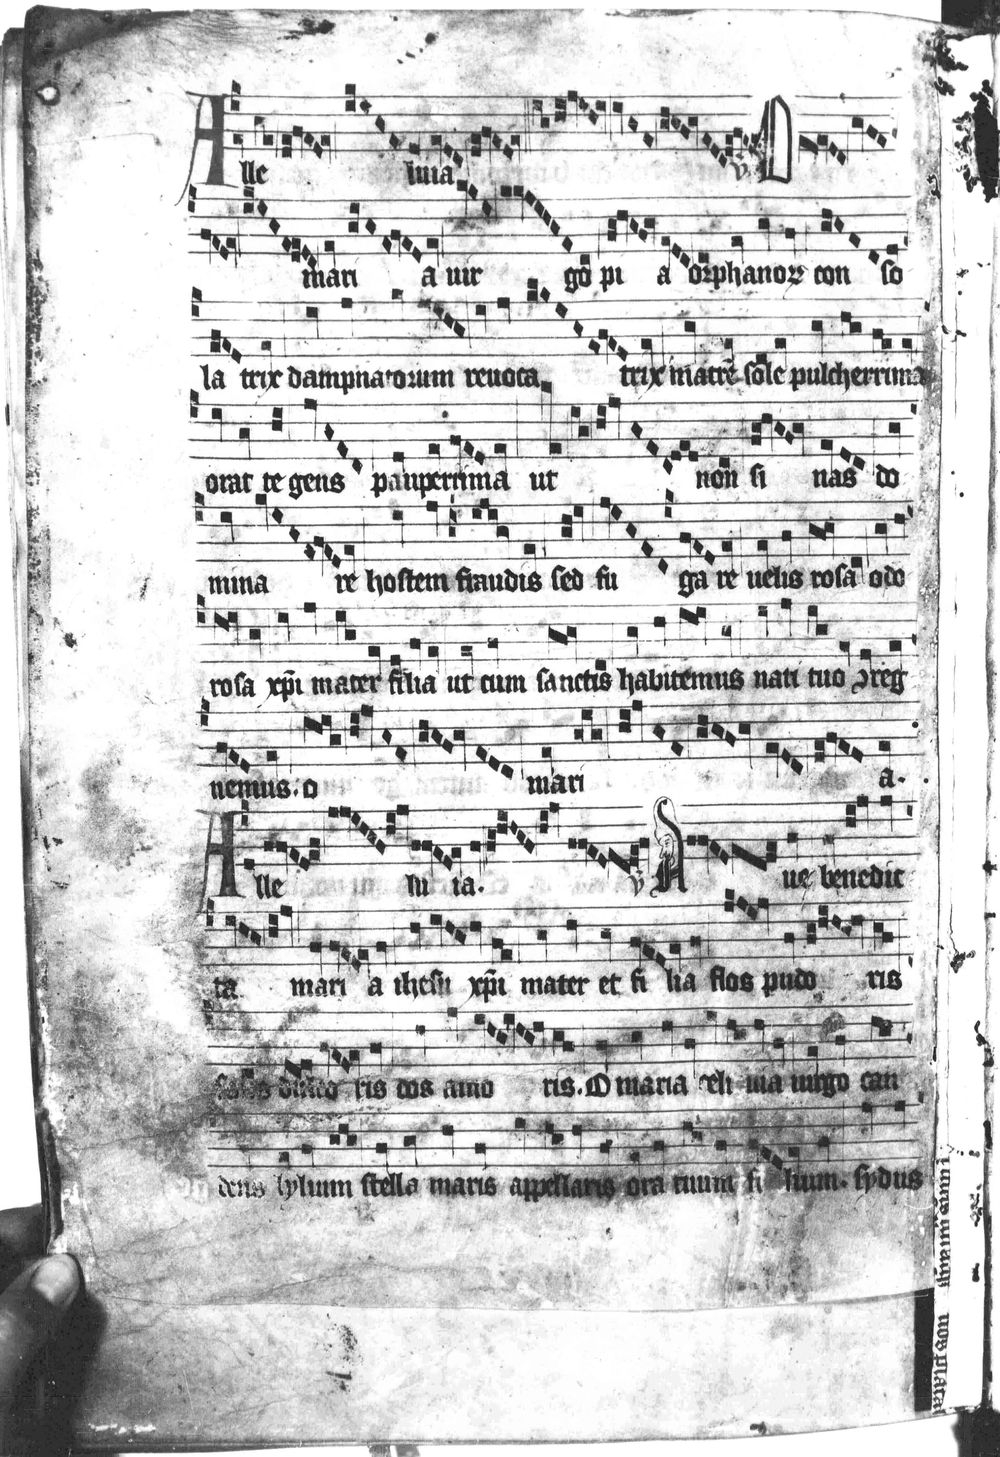 Alle luia ℣ O
mari a uir go pi a orphanoꝝ con so
la trix dampnatorum reuoca trix matrē sole pulcherrima
orat te gens pauperrima ut non si nas do
mina re hostem fraudis sed fu ga re uelis rosa odo
rosa xp̄i mater filia ut cum sanctis habitemus nati tuo ɔreg
nemus. o mari a.
Alle lu ia. ℣ A ue benedic
ta mari a ihesu xp̄i mater et fi lia flos pudo ris
ris dos amo ris. O maria uirgo can
dens lylium stella maris appellaris ora tuum fi lium. sydus